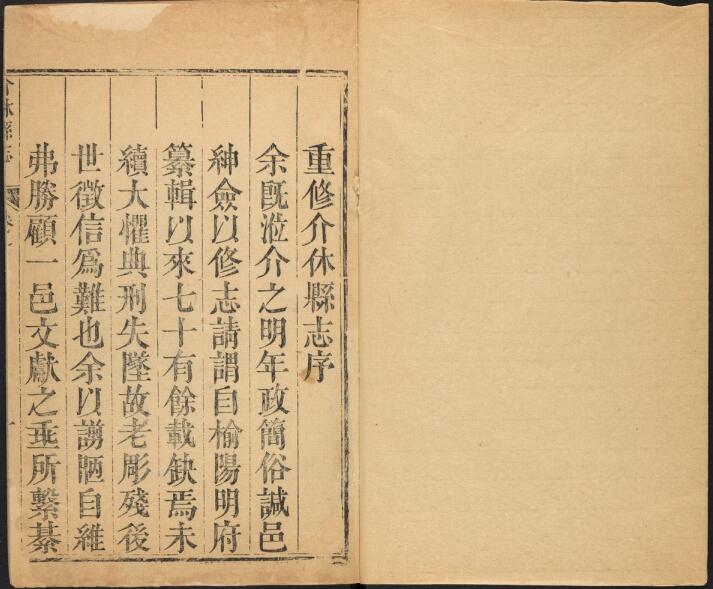 重修介休縣志序
余旣涖介之明年政簡俗諴邑
紳僉以修志請謂自榆陽明府
纂輯以來七十有餘載缺焉未
續大懼典刑失墜故老彫殘後
世徵信爲難也余以謭陋自維
弗勝顧一邑文獻之垂所繫綦
介休縣志
一